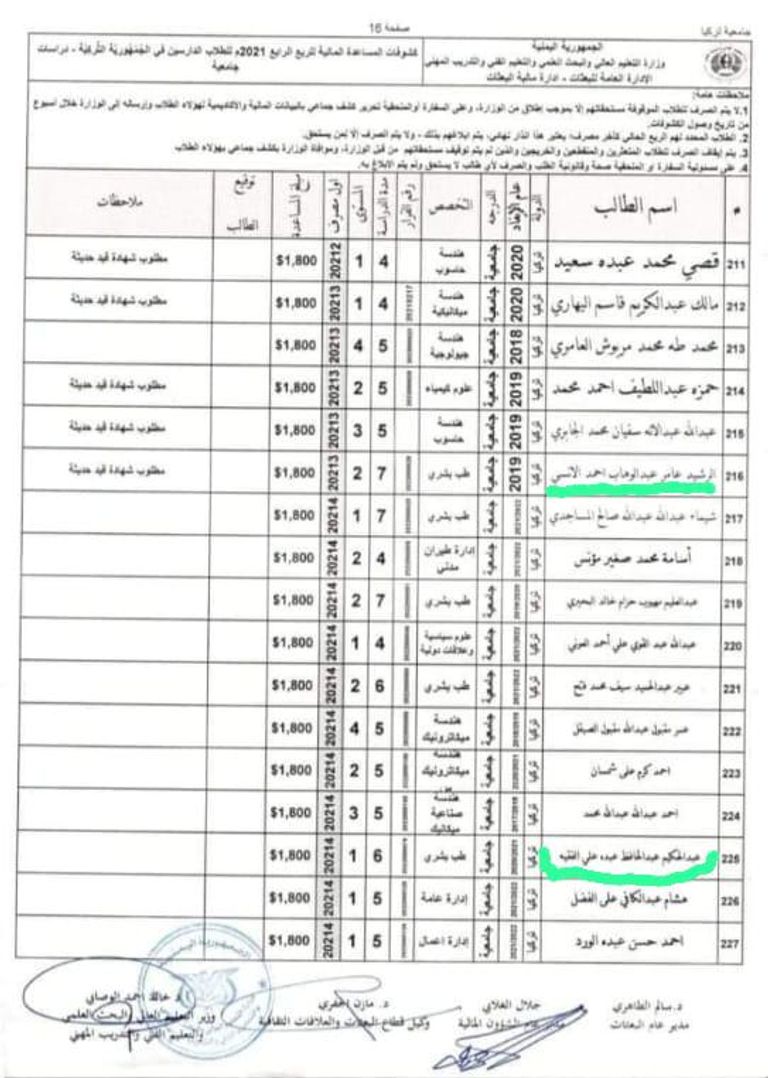 جامعية تركيا
صفحة 16
الجمهورية اليمنية
وزارة التعليم العالي والبحث العلمي والتعليم الفني والتدريب المهني
الإدارة العامة للبعثات - ادارة مالية البعثات
كشوفات المساعدة المالية للربع الرابع 2021م للطلاب الدارسين في الجمهورية التركية - دراسات جامعية
ملاحظات عامة:
1. لا يتم الصرف للطلاب الموقوفة مستحقاتهم إلا بموجب إطلاق من الوزارة، وعلى السفارة أو الملحقية تحرير كشف جماعي بالبيانات المالية والأكاديمية لهؤلاء الطلاب وإرساله إلى الوزارة خلال أسبوع
من تاريخ وصول الكشوفات.
2. الطلاب المحدد لهم الربع الحالي كآخر مصرف؛ يعتبر هذا انذار نهائي، يتم ابلاغهم بذلك - ولا يتم الصرف إلا لمن يستحق.
3. يتم إيقاف الصرف للطلاب المتعثرين والمنقطعين والخريجين والذين لم يتم توقيف مستحقاتهم من قبل الوزارة، وموافاة الوزارة بكشف جماعي بهؤلاء الطلاب
4. على مسئولية السفارة او الملحقية صحة وقانونية الطلب والصرف لأي طالب لا يستحق ولم يتم الابلاغ به.
# اسم الطالب الدولة عام الإيفاد الدرجه التخصص رقم القرار مدة الدراسة المستوى اول مصرف مبلغ المساعدة توقيع الطالب ملاحظات
211 قصي محمد عبده سعيد تركيا 2020 جامعية هندسة حاسوب 4 1 20212 $1,800 مطلوب شهادة قيد حديثة
212 مالك عبدالكريم قاسم البهاري تركيا 2020 جامعية هندسة ميكانيكية 4 1 20213 $1,800 مطلوب شهادة قيد حديثة
213 محمد طه محمد مربوش العامري تركيا 2018 جامعية هندسة جيولوجية 5 4 20213 $1,800
214 حمزه عبداللطيف احمد محمد تركيا 2019 جامعية علوم كيمياء 5 2 20213 $1,800 مطلوب شهادة قيد حديثة
215 عبدالله عبدالاله سفيان محمد الجابري تركيا 2019 جامعية هندسة حاسوب 5 3 20213 $1,800 مطلوب شهادة قيد حديثة
216 الرشيد عامر عبدالوهاب احمد الانسي تركيا 2019 جامعية طب بشري 7 2 20213 $1,800 مطلوب شهادة قيد حديثة
217 شيماء عبدالله عبدالله صالح المساجدي تركيا 2021/2022 جامعية طب بشري 7 1 20214 $1,800
218 أسامة محمد صغير مؤنس تركيا 2021/2022 جامعية إدارة طيران مدني 4 2 20214 $1,800
219 عبدالعليم مهيوب حزام خالد البحيري تركيا جامعية طب بشري 7 2 20214 $1,800
220 عبدالله عبد القوي علي أحمد العوني تركيا 2021/2022 جامعية علوم سياسية وعلاقات دولية 4 1 20214 $1,800
221 عبير عبدالحميد سيف محمد فتح تركيا 2021/2022 جامعية طب بشري 6 2 20214 $1,800
222 عمر مقبول عبدالله مقبول الصيقل تركيا 2018/2019 جامعية هندسة ميكاترونيك 5 4 20214 $1,800
223 احمد كرم على شمسان تركيا 2020/2021 جامعية هندسة ميكاترونيك 5 2 20214 $1,800
224 احمد عبدالله عبدالله محمد تركيا 2017/2018 جامعية هندسة صناعية ميكانيك 5 3 20214 $1,800
225 عبدالحكيم عبدالحافظ عبده علي الفقيه تركيا 2020/2021 جامعية طب بشري 6 1 20214 $1,800
226 هشام عبدالكافي على الفضل تركيا 2021/2022 جامعية إدارة عامة 5 1 20214 $1,800
227 احمد حسن عبده الورد تركيا 2021/2022 جامعية إدارة اعمال 5 1 20214 $1,800
د.سالم الظاهري
مدير عام البعثات
جلال الفلاي
مدير عام الشؤون المالية
د. مازن الجفري
وكيل قطاع البعثات والعلاقات الثقافية
د خالد احمد الوصابي
وزير التعليم العالي والبحث العلمي
والتعليم الفني والتدريب المهني